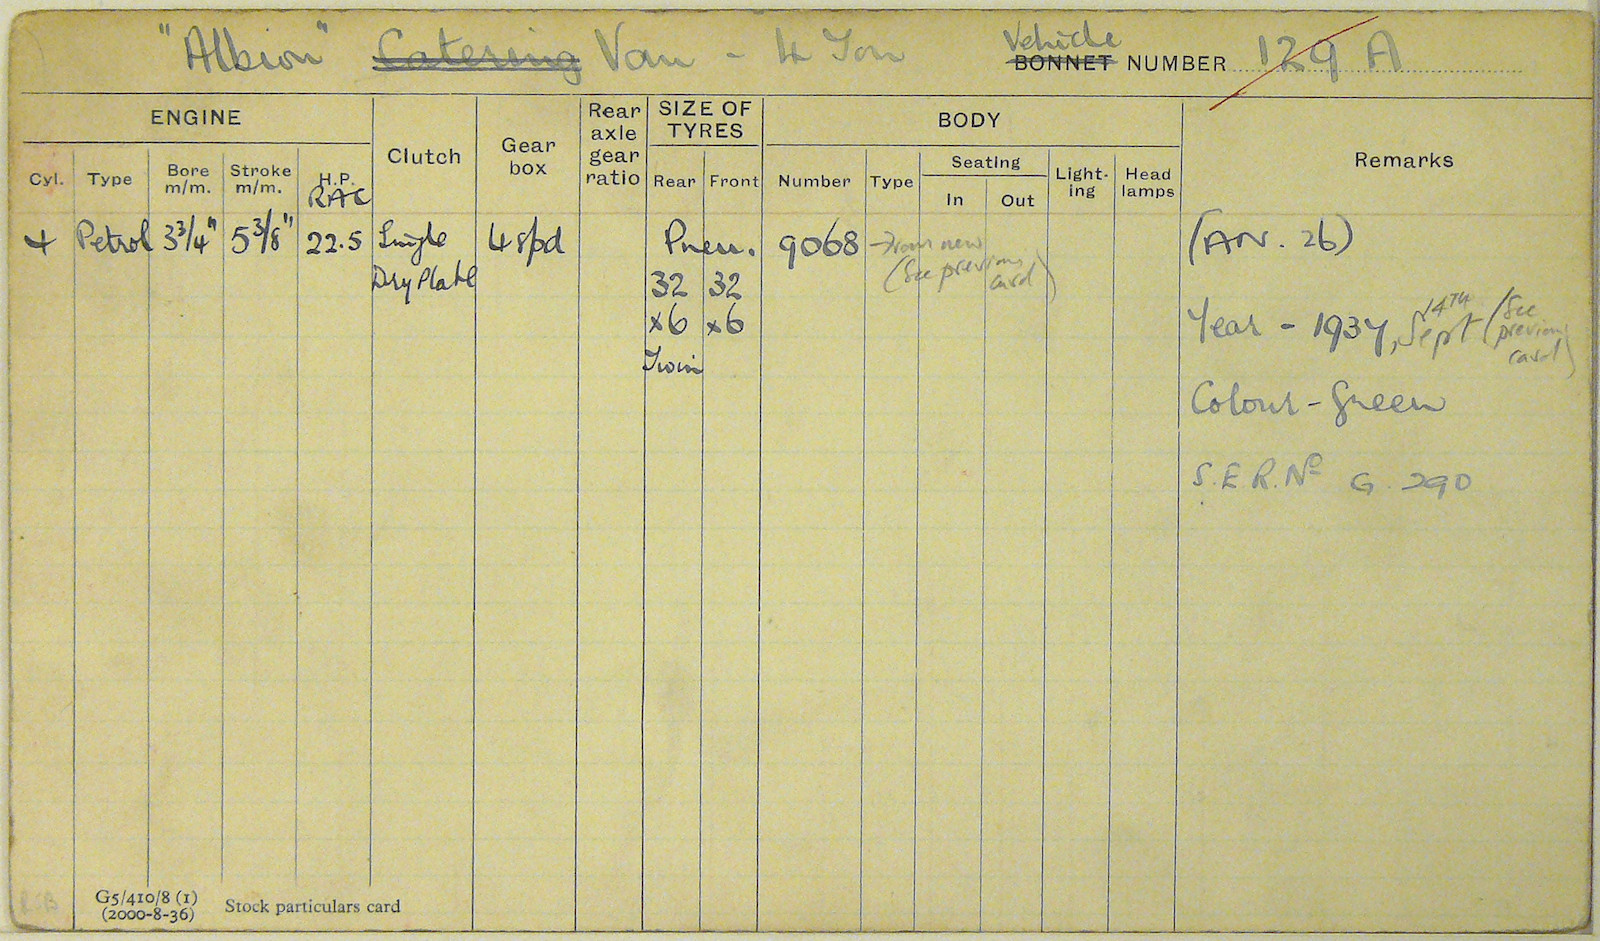 "Albion" Catering Van - 4 Ton Vehicle BONNET NUMBER 129 A
ENGINE
Clutch
Gear box
Rear axle gear ratio
SIZE OF TYRES
BODY
Remarks
Cyl. Type Bore m/m. Stroke m/m. H.P. RAC
Rear Front
Number Type Seating In Out Light-ing Head lamps
4 Petrol 3¾" 5⅜" 22.5 Single 4 spd Pneu. 9068 → From new (AN. 26)
Dry Plate 32 32 (See previous card)
×6 ×6 Year - 1937, 14TH Sept (See previous card)
Twin
Colour - Green
S.E.R. Nº G. 290
G5/410/8 (1)
(2000-8-36) Stock particulars card